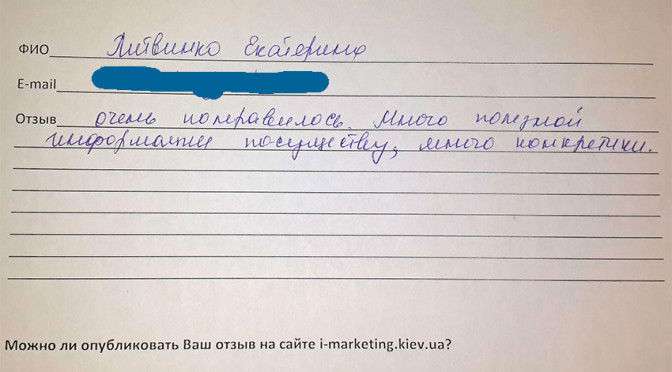 ФИО Литвинко Екатерина
E-mail
Отзыв очень понравилось. Много полезной
информации посуществу, много конкретики.
Можно ли опубликовать Ваш отзыв на сайте i-marketing.kiev.ua?